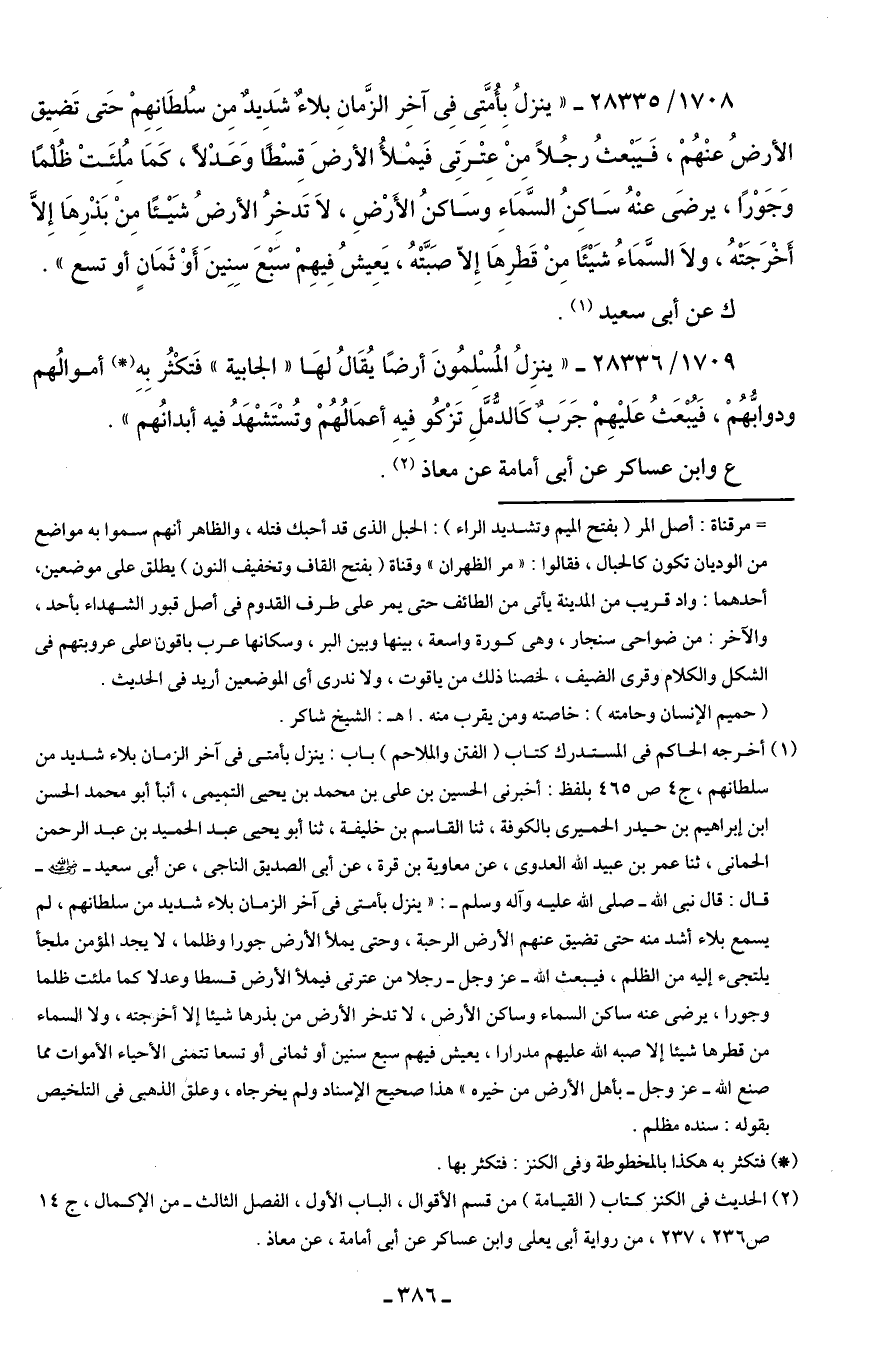 ٢٨٣٣٥/١٧٠٨ ـ « ينزلُ بأُمَّتِى فِى آخرِ الزَّمانِ بلاءٌ شَديدٌ من سلُطَانِهِمْ حَتى تَضيق
الأرضُ عنْهُمْ ، فَـيَبْعثُ رجُـلاً مِنْ عتْـرَتِى فَيمْـلأُ الأرضَ قِسْطًا وَعَـدْلاً ، كَمَا مُلئَـتْ ظُلْمًا
وَجَوْرًا ، يرضَى عنْهُ سَـاكِنُ السَّمَاءِ وسَـاكنُ الأَرْضِ ، لاَ تَدخرُ الأرضُ شَيْـئًا مِنْ بَذْرِهَا إلاَّ
أَخْرَجَتْهُ ، ولاَ السَّمَاءُ شَيْئًا مِنْ قَطْرِهَا إلاّ صَبَّتْهُ ، يَعِيشُ فِيهِمْ سَبْعَ سِنِينَ أَوْ ثَمَانٍ أو تسع » .
ك عن أبى سعيد (١) .
٢٨٣٣٦/١٧٠٩ ـ « ينزِلُ المُسْلِمُونَ أرضًا يُقَالُ لهَـا « الجابية » فَتكْثُر بِهِ(*) أمـوالُهم
ودوابُّهُمْ ، فَيُبْعَثُ عَليْهِمْ جَرَبٌ كَالدُّمَّلِ تَزْكُو فِيهِ أعمَالُهُمْ وتُسْتَشْهَدُ فيه أبدانُهم » .
ع وابن عساكر عن أبى أمامة عن معاذ (٢) .
= مرقناة : أصل المر ( بفتح الميم وتشـديد الراء ) : الحبل الذى قد أحبك فتله ، والظاهر أنهم سـموا به مواضع
من الوديان تكون كالحبال ، فقالوا : « مر الظهران » وقناة ( بفتح القاف وتخفيف النون ) يطلق على موضعين،
أحدهما : واد قـريب من المدينة يأتى من الطائف حتى يمر على طـرف القدوم فى أصل قبور الشـهداء بأحد ،
والآخر : من ضواحى سنجار ، وهى كـورة واسعة ، بينها وبين البر ، وسكانها عـرب باقون على عروبتهم فى
الشكل والكلام وقرى الضيف ، لخصنا ذلك من ياقوت ، ولا ندرى أى الموضعين أريد فى الحديث .
( حميم الإنسان وحامته ) : خاصته ومن يقرب منه . ا هـ : الشيخ شاكر .
(١) أخـرجه الحـاكم فى المستـدرك كتـاب ( الفتن والملاحم ) بـاب : ينزل بأمتـى فى آخر الزمـان بلاء شـديد من
سلطانهم ، ج٤ ص ٤٦٥ بلفظ : أخبرنى الحسين بن على بن محمد بن يحيى التميمى ، أنبأ أبو محمد الحسن
ابن إبراهيم بن حيـدر الحميـرى بالكوفة ، ثنا القـاسم بن خليفـة ، ثنا أبو يحيى عبـد الحميـد بن عبـد الرحمن
الحمانى ، ثنا عمر بن عبيد الله العدوى ، عن معاوية بن قرة ، عن أبى الصديق الناجى ، عن أبى سعيد ـ رضي الله عنه ـ
قـال : قال نبى الله ـ صلى الله عليـه وآله وسلم ـ : « ينزل بأمـتى فى آخر الزمـان بلاء شديد من سلطانهم ، لم
يسمع بلاء أشد منه حتى تضيق عنهم الأرض الرحبة ، وحتى يملأ الأرض جورا وظلما ، لا يجد المؤمن ملجأ
يلتجىء إليه من الظلم ، فيـبعث الله ـ عز وجل ـ رجلا من عترتى فيملأ الأرض قـسطا وعدلا كما ملئت ظلما
وجورا ، يرضى عنه ساكن السماء وساكن الأرض ، لا تدخر الأرض من بذرها شيئا إلا أخرجته ، ولا السماء
من قطرها شيئا إلا صبه الله عليهم مدرارا ، يعيش فيهم سبع سنين أو ثمانى أو تسعا تتمنى الأحياء الأموات مما
صنع الله ـ عز وجل ـ بأهل الأرض من خيره » هذا صحيح الإسناد ولم يخرجاه ، وعلق الذهبى فى التلخيص
بقوله : سنده مظلم .
(*) فتكثر به هكذا بالمخطوطة وفى الكنز : فتكثر بها .
(٢) الحديث فى الكنز كـتاب ( القيـامة ) من قسم الأقوال ، البـاب الأول ، الفصل الثالث ـ من الإكـمال ، ج ١٤
ص٢٣٦ ، ٢٣٧ ، من رواية أبى يعلى وابن عساكر عن أبى أمامة ، عن معاذ .
ـ ٣٨٦ ـ